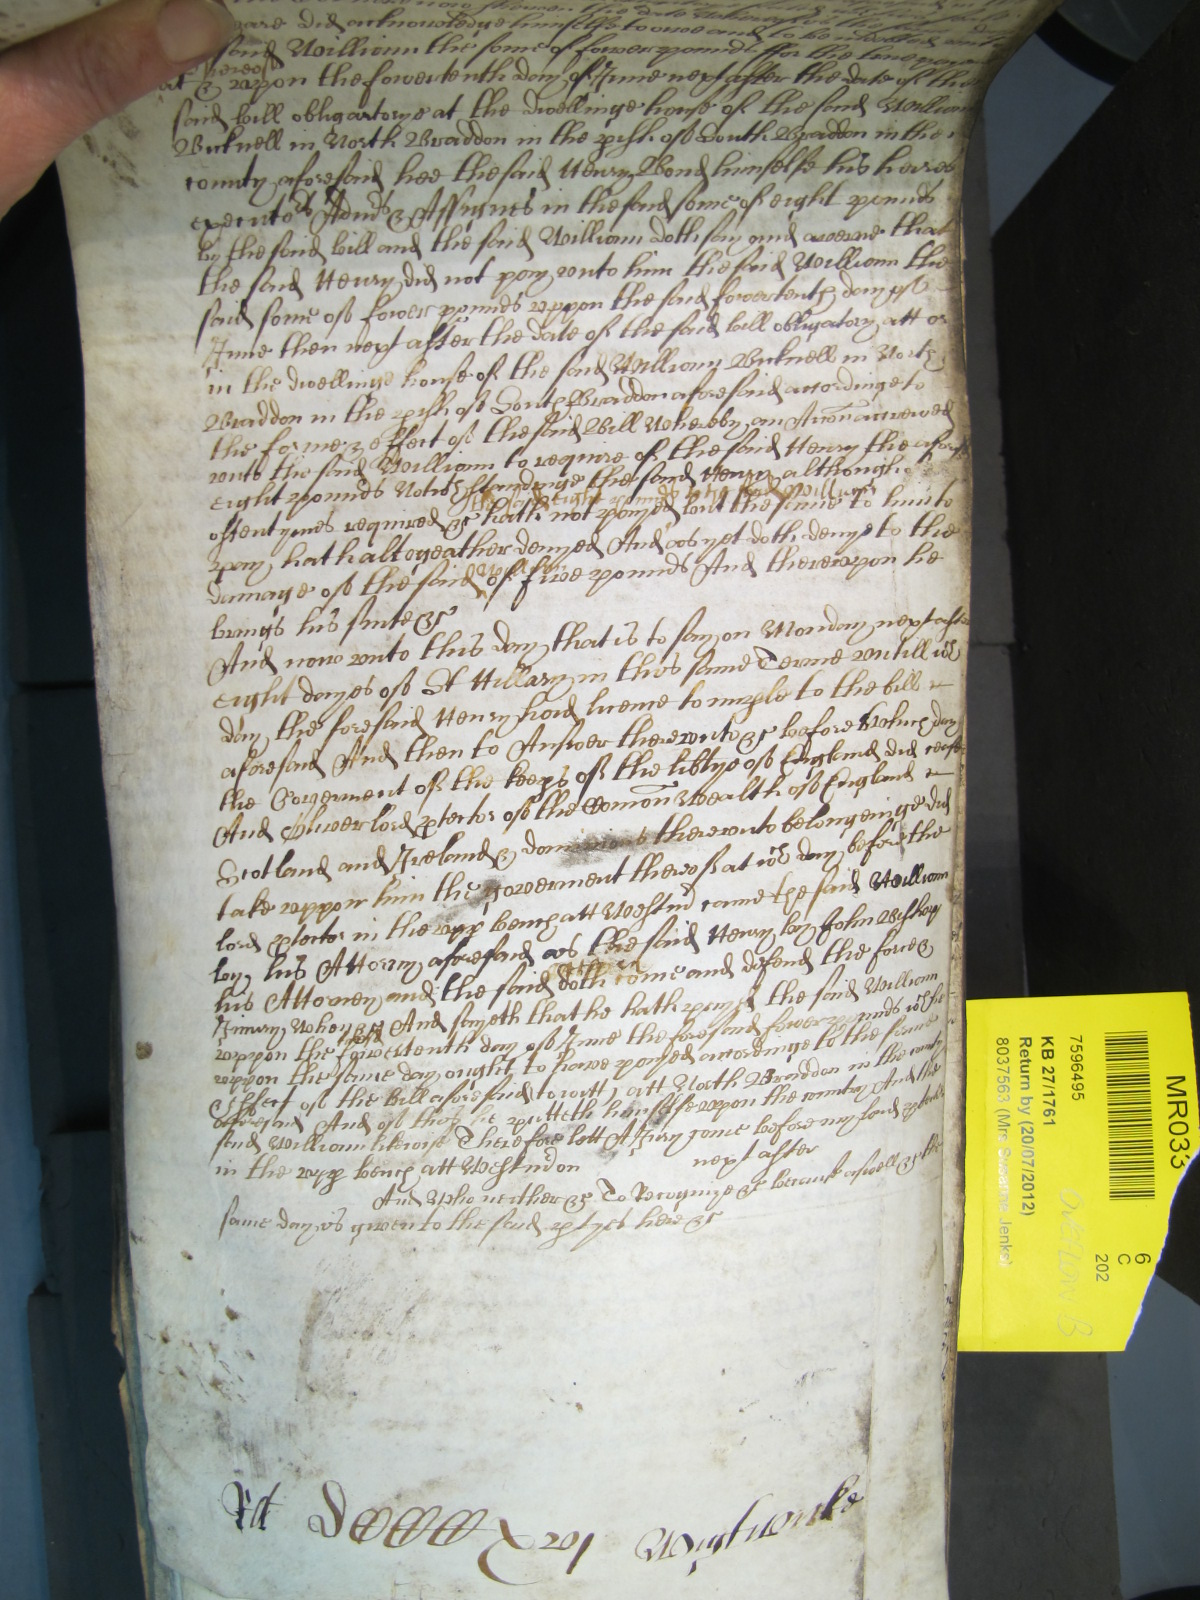 yeare did acknowledge himselfe to owe and to be indebted unto
said William the some of fower pounds for the
thereof
att & uppon the fowertenth day of June next after the date of the
said bill obligatorye at the dwellinge house of the said William
Bicknell in North Braddon in the pish of South Braddon in the
county aforesaid hee the said Henry Bond himselfe his heires
executors Admrs & Assignes in the said some of eight pounds
by the said bill and the said William doth say and averre that
the said Henry did not pay unto him the said William the
said some of fower pounds uppon the said fowertenth day of
June then next after the date of the said bill obligatory att or
in the dwellinge house of the said William Bicknell in North
Braddon in the pish of South Braddon aforesaid accordinge to
the forme & effect of the said Bill Whereby an Accon accrewed
unto the said William to require of the said Henry the aforesd
eight pounds Notwthstandinge the said Henry although
the said eight pounds to the said William
oftentymes required &c hath not payed but the same to him to
pay hath altogeather denyed And as yet doth denye to the
William
damage of the said of five pounds And thereupon he
brings his suite &c
And now unto this day that is to say on Monday next after
eight dayes of St Hillary in this same Terme untill wch
day the foresaid Henry had licence to imple to the bill
aforesaid And then to Answer thereunto &c before which day
the Goverment of the keeps of the libtye of England did cease
And Oliver lord ptector of the Comon Wealth of England
Scotland and Ireland & dominions thereunto belongeinge did
take uppon him the goverment thereof at wch day before the
lord ptector in the upp bench att Westm came the said William
by his Attorny aforesaid as the said Henry by John Bishop
his Attorney and the said doth come and defend the force &
Iniury When &c And sayeth that he hath payd the said William
uppon the said fowertenth day of June the foresaid fower pounds wch he
uppon the same day ought to have payed accordinge to the forme
Effect of the bill aforesaid to witt att North Braddon in the county
aforesaid And of this he putteth himselfe upon the country And the
said William likewise Therefore lett A Jury come before my lord ptector
in the upp bench att Westm on next after
And Who neither &c To Recognize &c because aswell &c the
same day is given to the said ptyes here &c
Wightwicke
MR033
7596495
KB 27/1761
Return by (20/07/2012)
8037563 (Mrs Susanne Jenks)
6
C
202